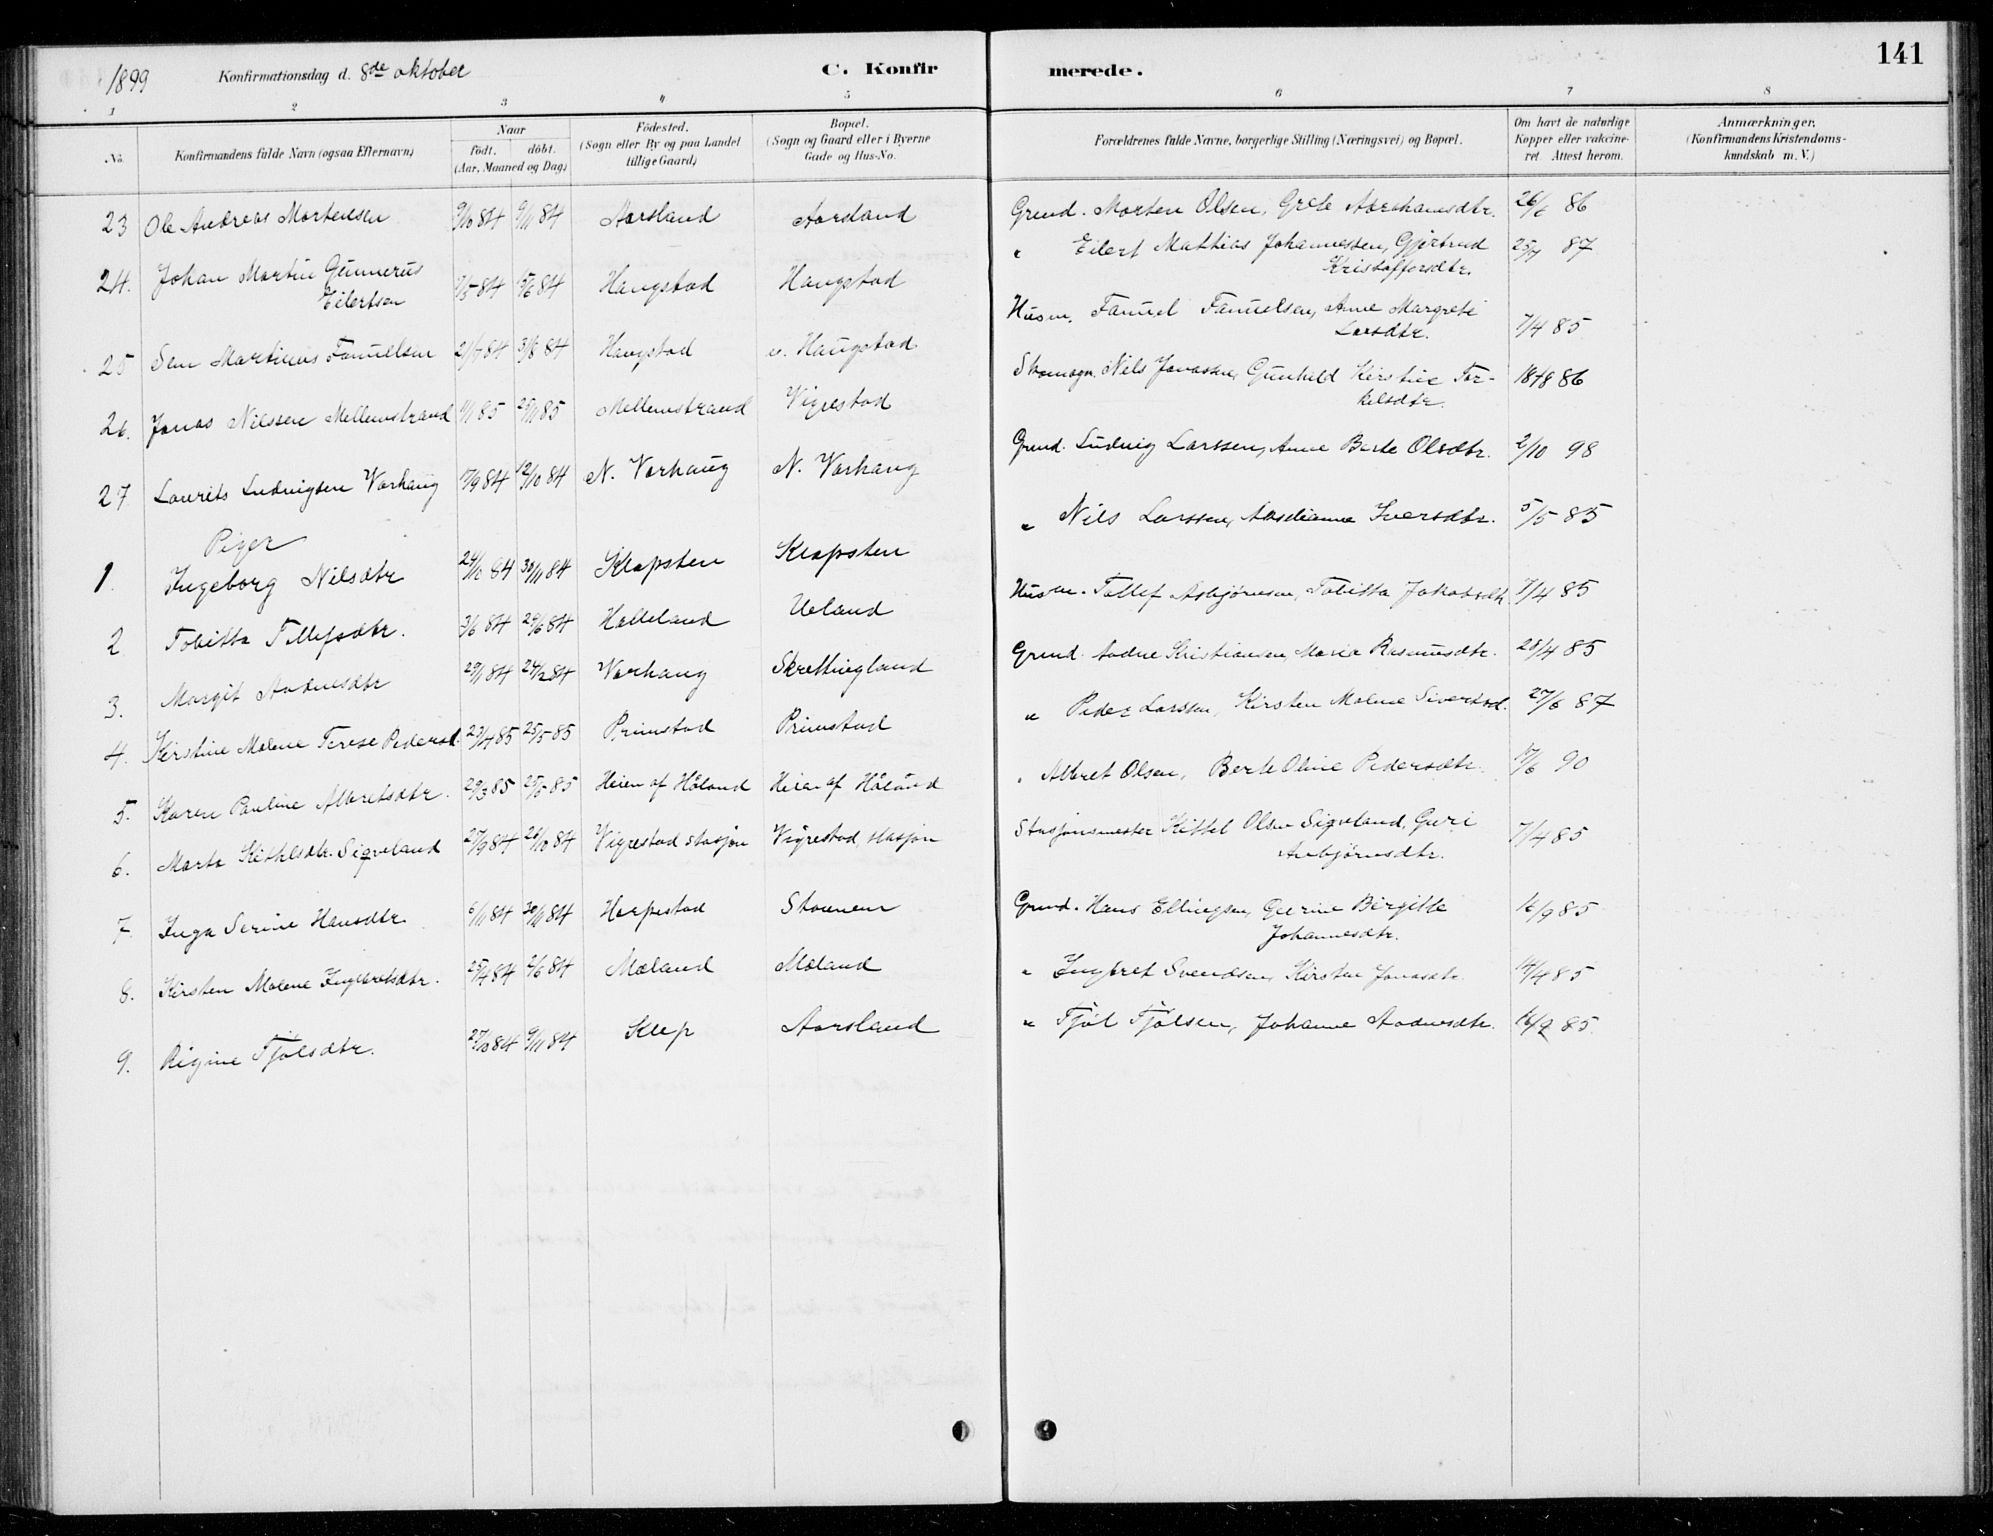 141
1899 Konfirmationsdag d. 8de oktober C. Konfirmerede.
1 2 3 4 5 6 7 8
No. Konfirmandens fulde Navn (ogsaa Efternavn) Naar født. døbt. (Aar, Maaned og Dag) Födested. (Sogn eller By og paa Landet tillige Gaard) Bopæl. (Sogn og Gaard eller i Byerne Gade og Hus-No. Forældrenes fulde Navne, borgerlige Stilling (Næringsvei) og Bopæl. Om havt de naturlige Kopper eller vakcineret. Attest herom. Anmærkninger, (Konfirmandens Kristendomskundskab m. V.)
23 Ole Andreas Mortensen 9/10 84 9/11 84 Aarsland Aarsland Grmd. Morten Olsen, Grete Abrahamsdtr. 26/6 86
24. Johan Martin Gunnerus Eilertsen 5/6 84 Haugstad Haugstad " Eilert Mathias Johannessen, Gjertrud Kristoffersdtr. 25/7 87
25 Sem Martinus Fanuelsen 2/7 84 3/8 84 Haugstad Haugstad Husm. Fanuel Fanuelsen, Anne Margrete Larsdtr. 7/4 85
26. Jonas Nilssen Mellemstrand 1/1 85 25/1 85 Mellemstrand Vigrestad Nils Jonassen, Gunhild Kirstine Torkelsdtr. 18/8 86
27 Laurits Ludvigsen Varhaug 17/9 84 12/10 84 N. Varhaug N. Varhaug Grmd. Ludvig Larssen, Anne Berte Olsdtr. 2/10 98
Piger
1. Ingeborg Nilsdtr 24/10 84 30/11 84 Klapsten Klapsten " Nils Larssen, Iversdtr. 5/5 85
2 Tobitta Tollefsdtr. 3/6 84 29/6 84 Helleland Ueland Husm. Tollef Asbjørnsen, Tobitta Jakobsdtr 7/4 85
3. Margit Aadnesdtr 29/1 84 24/2 84 Varhaug Skrettingland Grmd. Aadne Kristiansen, Maria Rasmusdtr. 28/4 85
4. Kirstine Malene Terese Pedersd. 23/4 85 25/5 85 Primstad Primstad " Peder Larssen, Kirsten Malene Sivertsd. 27/6 87
5. Karen Pauline Albretsdtr. 29/3 85 25/5 85 Heien af Håland Heien af Håland " Albret Olsen, Berte Oline Pedersdtr. 17/6 90
6. Marta Kittelsdtr. Sigveland 27/9 84 26/10 84 Vigrestad stasjon Vigrestad stasjon Stasjonsmester Kittel Olsen Sigveland, Guri Anbjørnsdtr. 7/4 85
7. Inga Serine Hansdtr. 6/11 84 30/11 84 Harpestad Stounem Grmd. Hans Ellingsen, Gurine Birgitte Johannesdtr. 16/9 85
8. Kirsten Malene Ingbretsdtr. 25/4 84 2/6 84 Mæland Mæland " Ingbret Svendsen, Kirsten Jonasdtr. 14/4 85
9. Rigine Tjølsdtr. 27/10 84 9/11 84 Klep Aarsland " Tjøl Tjølsen, Johanne Aadnesdtr. 16/9 85.